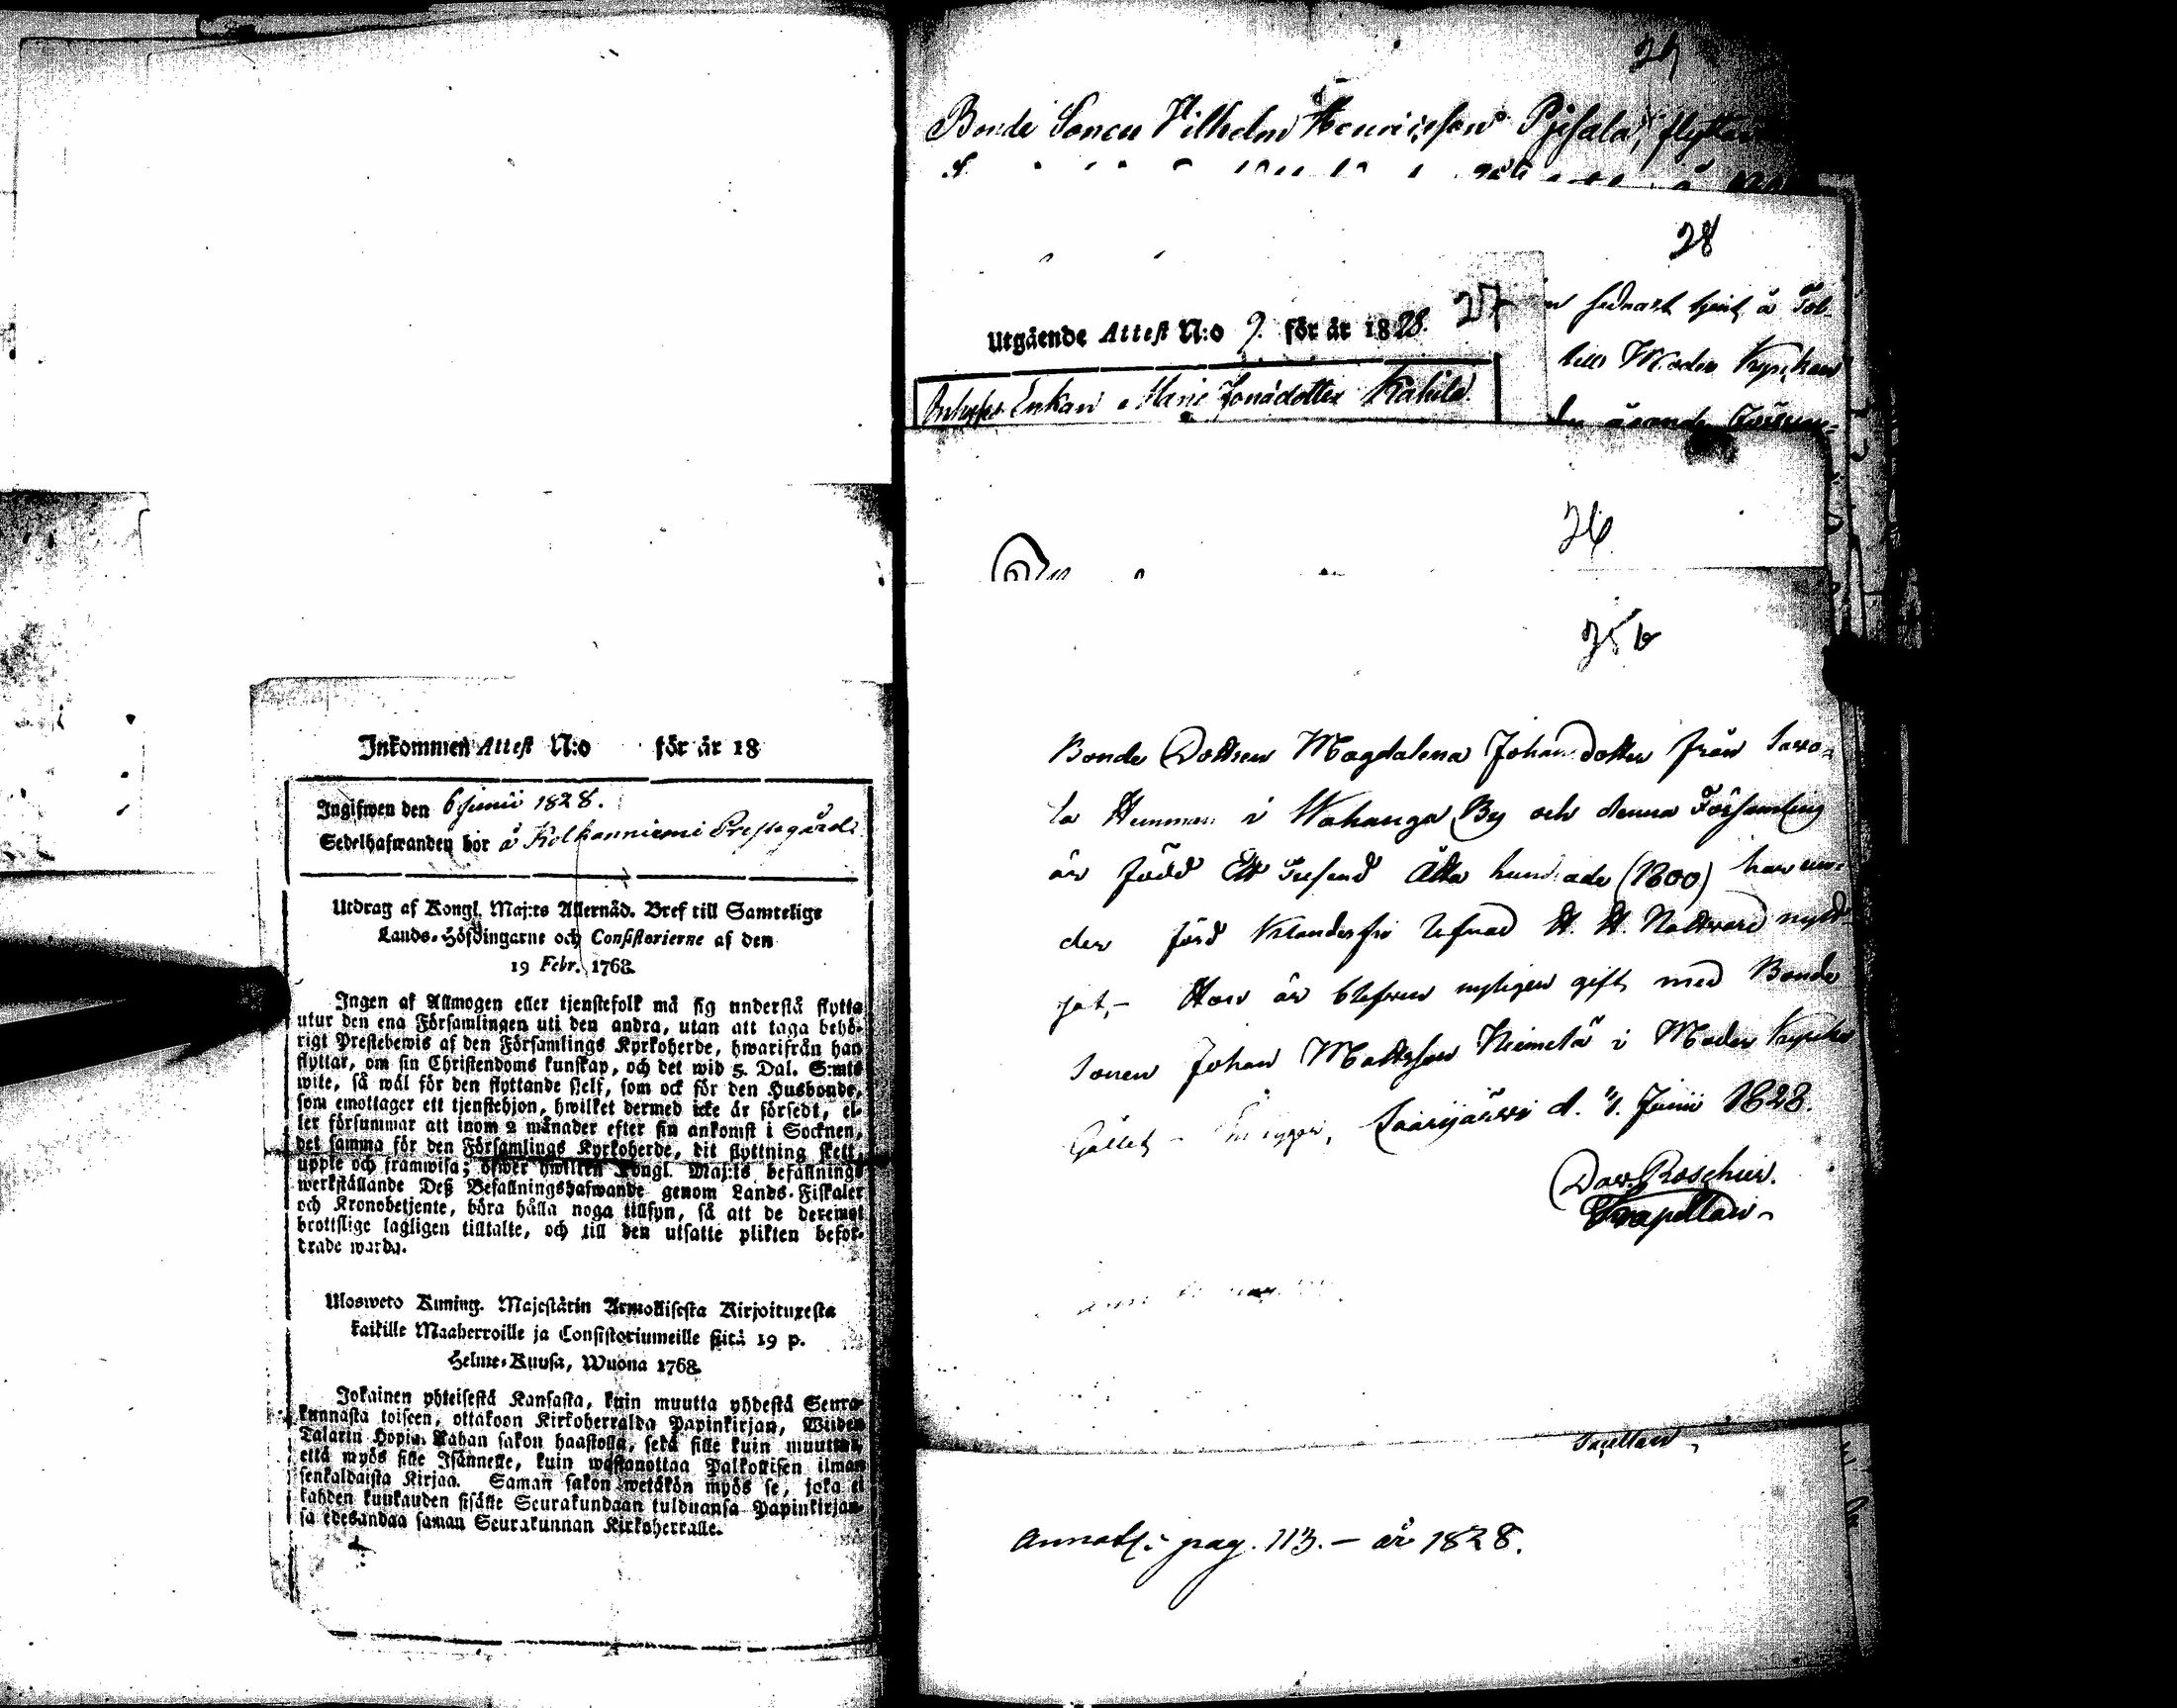 Inkommen Attest N:o för år 18
Ingifwen den 6 junii 1828.
Sedelhafwanden bor å Kolkanniemi Prestegård
Utdrag af Kongl. Maj:ts Allernåd. Bref till Samtelige
Lands-Höfdingarne och Consistorierne af den
19 Febr. 1768.
Ingen af Allmogen eller tjenstefolk må sig understå flytta
utur den ena Församlingen uti den andra, utan att taga behö-
rigt Prestebewis af den Församlings Kyrkoherde, hwarifrån han
flyttar, om sin Christendoms kunskap, och det wid 5. Dal. S:mts
wite, så wäl för den flyttande sielf, som ock för den Husbonde,
som emottager ett tjenstehjon, hwilket dermed icke är försedt, el-
ler försummar att inom 2 månader efter sin ankomst i Socknen,
det samma för den Församlings Kyrkoherde, dit flyttning skett,
upple och framwisa; öfwer hwilken Kongl. Maj:ts befallning
werkställande Deß Befallningshafwande genom Lands-Fiskaler
och Kronobetjente, böra hålla noga tillsyn, så att de deremot
brottslige lagligen tilltalte, och till den utsatte plikten befor-
drade warda.
Ulosweto Kuning. Majestätin Armollisesta Kirjoituxesta
kaikille Maaherroille ja Consistoriumeille siitä 19 p.
Helme-Kuusa, Wuona 1768.
Jokainen yhteisestä Kansasta, kuin muutta yhdestä Seura-
kunnasta toiseen, ottakoon Kirkoherralda Papinkirjan, Wiiden
Talarin Hopia Rahan sakon haastolla, sekä sille kuin muuttaa,
että myös sille Isännelle, kuin wastanottaa Palkollisen ilman
senkaldaista Kirjaa. Saman sakon wetäkön myös se, joka ei
kahden kuukauden sisälle Seurakundaan tulduansa Papinkirjan-
sa edesandaa saman Seurakunnan Kirkoherralle.
29
Bonde Sonen Wilhelm Henricsson Pjesala, flyttar
28
sednast tjent å
till Moder Kyrkan
27
Utgående Attest N:o 9. för år 1828.
Enkan Maria Jonädotter Kahila
26
25 b
Bonde Dottren Magdalena Johansdotter från Savo-
la Hemman i Wahanga By och denna Församling
är född Ett Tusend Åtta hundrade (1800) har un-
der förd Klanderfri Lefnad H. H. Nattvard nytt-
jat, - Hon är blefven nyligen gift med Bonde
Sonen Johan Mattsson Niemelä i Moder Kyrko
Gället Saarijärvi d. 1/1. Junii 1828.
Dav. Roschier.
Capellan
Capellan
Annot. pag. 113. - år 1828.